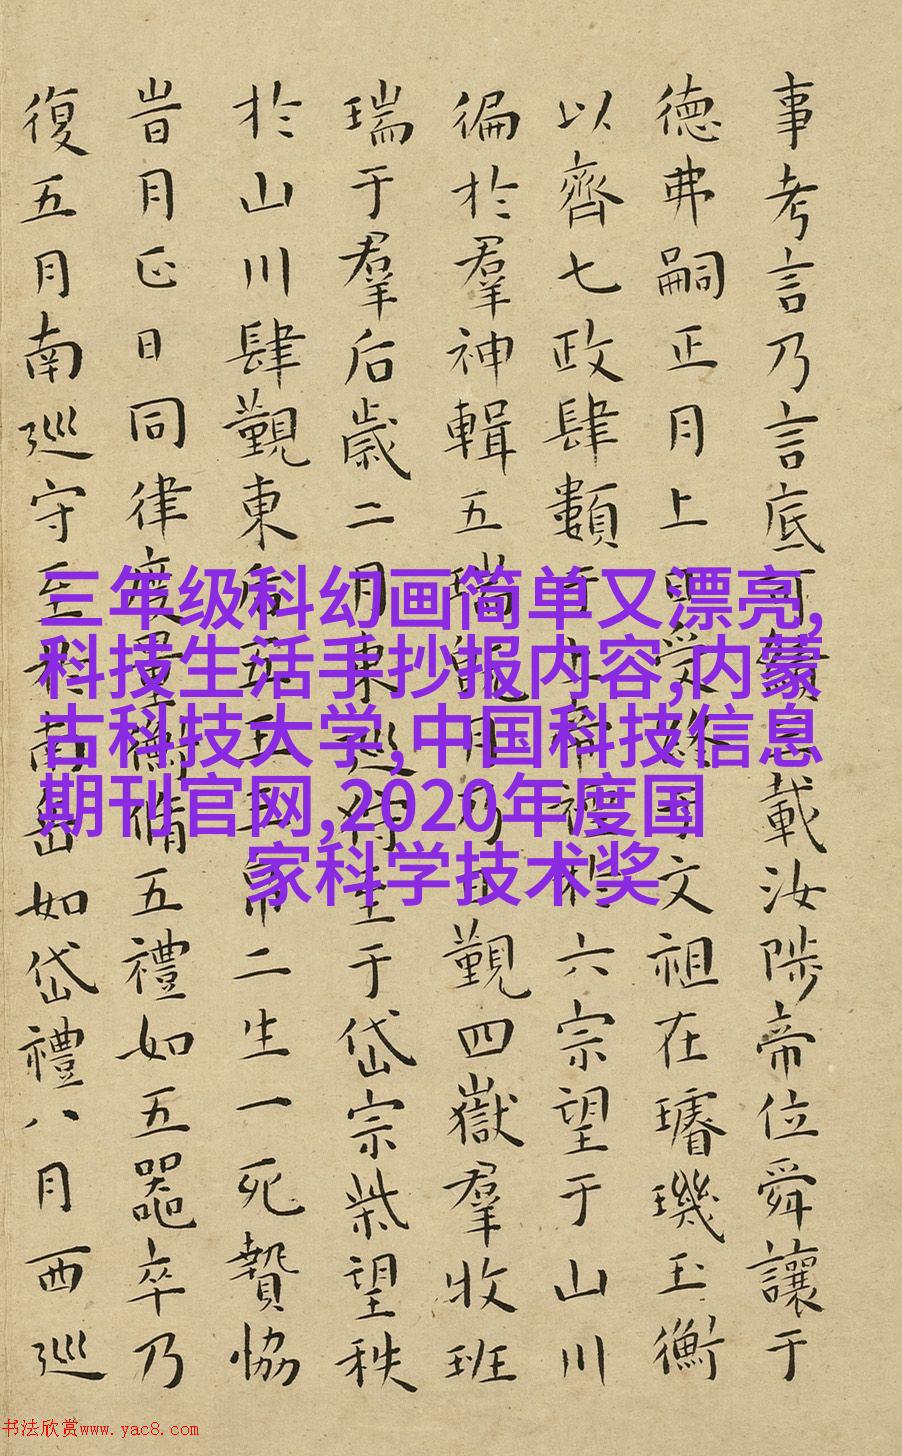 事考言乃言底可績三載汝陟帝位舜讓于
德弗嗣正月上日受終于文祖在璿璣玉衡
以齊七政肆類于上帝禋於六宗望于山川
徧於羣神輯五瑞旣月乃日覲四嶽羣牧班
瑞于羣后歲二月東巡狩至于岱宗柴望秩
於山川肆覲東后五玉三帛二生一死贄協
旹月正日同律度量衡脩五禮如五器卒乃
復五月南巡守至于南岳如岱禮八月西巡
三年级科幻画简单又漂亮,
科技生活手抄报内容,内蒙
古科技大学,中国科技信息
期刊官网,2020年度国
家科学技术奖
书法欣赏www.yac8.com